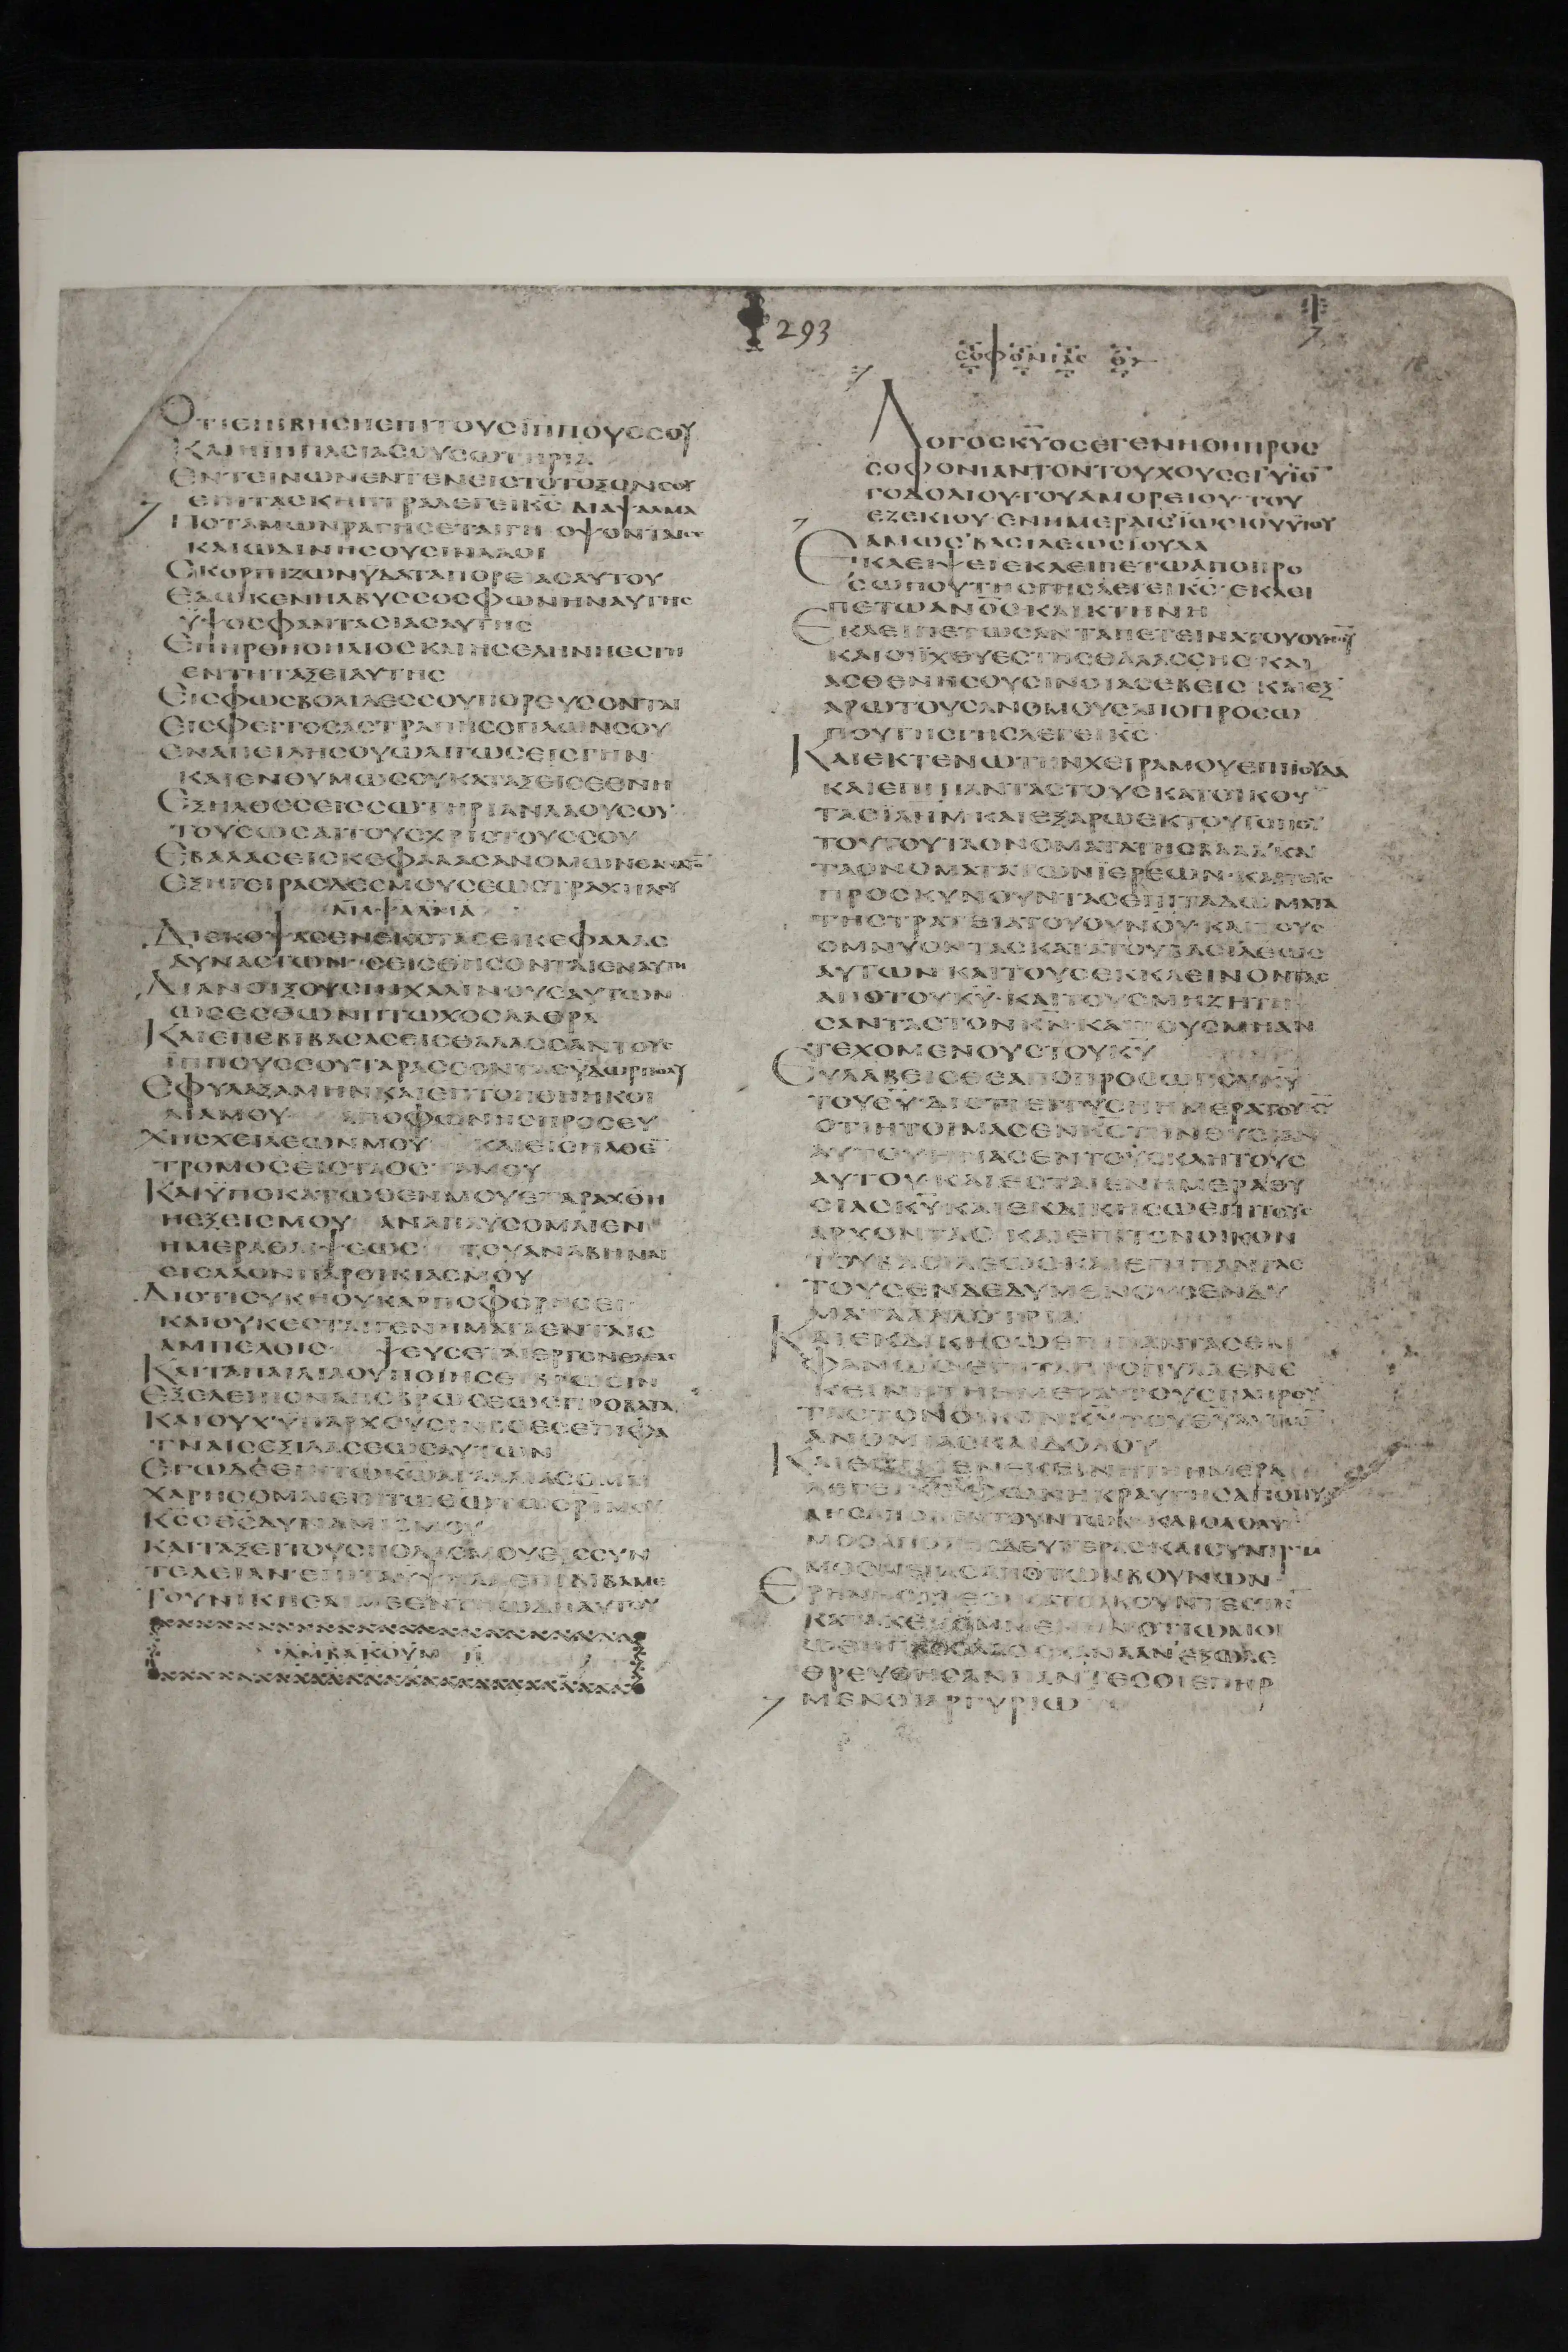 293
ΟΤΙΕΠΙΒΗCΗΕΠΙΤΟΥCΪΠΠΟΥCCΟΥ
ΚΑΙΗΪΠΠΑCΙΑCΟΥCΩΤΗΡΙΑ
ΕΝΤΕΙΝΩΝΕΝΤΕΝΕΙCΤΟΤΟΞΟΝCΟΥ
ΕΠΙΤΑCΚΗΠΤΡΑΛΕΓΕΙΚC ΔΙΑΨΑΛΜΑ
ΠΟΤΑΜΩΝΡΑΓΗCΕΤΑΙΓΗ ΟΨΟΝΤΑΙCΕ
ΚΑΙΩΔΙΝΗCΟΥCΙΝΛΑΟΙ
CΚΟΡΠΙΖΩΝΫΔΑΤΑΠΟΡΕΙΑCΑΥΤΟΥ
ΕΔΩΚΕΝΗΑΒΥCCΟCΦΩΝΗΝΑΥΤΗC
ΫΨΟCΦΑΝΤΑCΙΑCΑΥΤΗC
ΕΠΗΡΘΗΟΗΛΙΟCΚΑΙΗCΕΛΗΝΗΕCΤΗ
ΕΝΤΗΤΑΞΕΙΑΥΤΗC
ΕΙCΦΩCΒΟΛΙΔΕCCΟΥΠΟΡΕΥCΟΝΤΑΙ
ΕΙCΦΕΓΓΟCΑCΤΡΑΠΗCΟΠΛΩΝCΟΥ
ΕΝΑΠΕΙΛΗCΟΥΩΛΙΓΩCΕΙCΓΗΝ
ΚΑΙΕΝΘΥΜΩCΟΥΚΑΤΑΞΕΙCΕΘΝΗ
ΕΞΗΛΘΕCΕΙCCΩΤΗΡΙΑΝΛΑΟΥCΟΥ
ΤΟΥCΩCΑΙΤΟΥCΧΡΙCΤΟΥCCΟΥ
ΕΒΑΛΑCΕΙCΚΕΦΑΛΑCΑΝΟΜΩΝΘΑΝΑΤΟ
ΕΞΗΓΕΙΡΑCΔΕCΜΟΥCΕΩCΤΡΑΧΗΛΟΥ
ΔΙΑΨΑΛΜΑ
ΔΙΕΚΟΨΑCΕΝΕΚCΤΑCΕΙΚΕΦΑΛΑC
ΔΥΝΑCΤΩΝ CΕΙCΘΗCΟΝΤΑΙΕΝΑΥΤΗ
ΔΙΑΝΟΙΞΟΥCΙΝΧΑΛΙΝΟΥCΑΥΤΩΝ
ΩCΕCΘΩΝΠΤΩΧΟCΛΑΘΡΑ
ΚΑΙΕΠΕΒΙΒΑCΑCΕΙCΘΑΛΑCCΑΝΤΟΥC
ΪΠΠΟΥCCΟΥΤΑΡΑCCΟΝΤΑCΥΔΩΡΠΟΛΥ
ΕΦΥΛΑΞΑΜΗΝΚΑΙΕΠΤΟΗΘΗΗΚΟΙ
ΛΙΑΜΟΥ ΑΠΟΦΩΝΗCΠΡΟCΕΥ
ΧΗCΧΕΙΛΕΩΝΜΟΥ ΚΑΙΕΙCΗΛΘΕ
ΤΡΟΜΟCΕΙCΤΑΟCΤΑΜΟΥ
ΚΑΙΫΠΟΚΑΤΩΘΕΝΜΟΥΕΤΑΡΑΧΘΗ
ΗΕΞΕΙCΜΟΥ ΑΝΑΠΑΥCΟΜΑΙΕΝ
ΗΜΕΡΑΘΛΙΨΕΩC ΤΟΥΑΝΑΒΗΝΑΙ
ΕΙCΛΑΟΝΠΑΡΟΙΚΙΑCΜΟΥ
ΔΙΟΤΙCΥΚΗΟΥΚΑΡΠΟΦΟΡΗCΕΙ
ΚΑΙΟΥΚΕCΤΑΙΓΕΝΗΜΑΤΑΕΝΤΑΙC
ΑΜΠΕΛΟΙC ΨΕΥCΕΤΑΙΕΡΓΟΝΕΛΑΙΑC
ΚΑΙΤΑΠΑΙΔΙΑΟΥΠΟΙΗCΕΙΒΡΩCΙΝ
ΕΞΕΛΕΙΠΟΝΑΠΟΒΡΩCΕΩCΠΡΟΒΑΤΑ
ΚΑΙΟΥΧΫΠΑΡΧΟΥCΙΝΒΟΕCΕΠΙΦΑ
ΤΝΑΙCΕΞΙΛΑCΕΩCΑΥΤΩΝ
ΕΓΩΔΕΕΝΤΩΚΩΑΓΑΛΛΙΑCΟΜΑΙ
ΧΑΡΗCΟΜΑΙΕΠΙΤΩΘΩΤΩCΩΤΗΡΙΜΟΥ
ΚCΟΘCΔΥΝΑΜΙCΜΟΥ
ΚΑΙΤΑΞΕΙΤΟΥCΠΟΔΑCΜΟΥΕΙCCΥΝ
ΤΕΛΕΙΑΝ ΕΠΙΤΑΥΨΗΛΑΕΠΙΒΙΒΑΜΕ
ΤΟΥΝΙΚΗCΑΙΜΕΕΝΤΗΩΔΗΑΥΤΟΥ
ΑΜΒΑΚΟΥΜ Η
CΟΦΟΝΙΑC Θ
ΛΟΓΟCΚΥΟCΕΓΕΝΗΘΗΠΡΟC
CΟΦΟΝΙΑΝΤΟΝΤΟΥΧΟΥCΕΙΥΪΟ
ΓΟΔΟΛΙΟΥ ΤΟΥΑΜΟΡΕΙΟΥ ΤΟΥ
ΕΖΕΚΙΟΥ ΕΝΗΜΕΡΑΙCΪΩCΙΟΥΥΪΟΥ
ΑΜΩC ΒΑCΙΛΕΩCΙΟΥΔΑ
ΕΚΛΕΙΨΕΙΕΚΛΕΙΠΕΤΩΑΠΟΠΡΟ
CΩΠΟΥΤΗCΓΗCΛΕΓΕΙΚC ΕΚΛΕΙ
ΠΕΤΩΑΝΟCΚΑΙΚΤΗΝΗ
ΕΚΛΕΙΠΕΤΩCΑΝΤΑΠΕΤΕΙΝΑΤΟΥΟΥΝΟΥ
ΚΑΙΟΙΪΧΘΥΕCΤΗCΘΑΛΑCCΗC ΚΑΙ
ΑCΘΕΝΗCΟΥCΙΝΟΙΑCΕΒΕΙC ΚΑΙΕΞ
ΑΡΩΤΟΥCΑΝΟΜΟΥCΑΠΟΠΡΟCΩ
ΠΟΥΤΗCΓΗCΛΕΓΕΙΚC
ΚΑΙΕΚΤΕΝΩΤΗΝΧΕΙΡΑΜΟΥΕΠΙΙΟΥΔΑ
ΚΑΙΕΠΙΠΑΝΤΑCΤΟΥCΚΑΤΟΙΚΟΥ
ΤΑCΪΛΗΜ ΚΑΙΕΞΑΡΩΕΚΤΟΥΤΟΠΟΥ
ΤΟΥΤΟΥΤΑΟΝΟΜΑΤΑΤΗCΒΑΑΛ ΚΑΙ
ΤΑΟΝΟΜΑΤΑΤΩΝΪΕΡΕΩΝ ΚΑΙΤΟΥC
ΠΡΟCΚΥΝΟΥΝΤΑCΕΠΙΤΑΔΩΜΑΤΑ
ΤΗCΤΡΑΤΕΙΑΤΟΥΟΥΝΟΥ ΚΑΙΤΟΥC
ΟΜΝΥΟΝΤΑCΚΑΤΑΤΟΥΒΑCΙΛΕΩC
ΑΥΤΩΝ ΚΑΙΤΟΥCΕΚΚΛΕΙΝΟΝΤΑC
ΑΠΟΤΟΥΚΥ ΚΑΙΤΟΥCΜΗΖΗΤΗ
CΑΝΤΑCΤΟΝΚΝ ΚΑΙΤΟΥCΜΗΑΝ
ΤΕΧΟΜΕΝΟΥCΤΟΥΚΥ
ΕΥΛΑΒΕΙCΘΕΑΠΟΠΡΟCΩΠΟΥΚΥ
ΤΟΥΘΥ ΔΙΟΤΙΕΓΓΥCΗΗΜΕΡΑΤΟΥΚΥ
ΟΤΙΗΤΟΙΜΑCΕΝΚCΤΗΝΘΥCΙΑΝ
ΑΥΤΟΥΗΓΙΑCΕΝΤΟΥCΚΛΗΤΟΥC
ΑΥΤΟΥ ΚΑΙΕCΤΑΙΕΝΗΜΕΡΑΘΥ
CΙΑCΚΥΚΑΙΕΚΔΙΚΗCΩΕΠΙΤΟΥC
ΑΡΧΟΝΤΑC ΚΑΙΕΠΙΤΟΝΟΙΚΟΝ
ΤΟΥΒΑCΙΛΕΩCΚΑΙΕΠΙΠΑΝΤΑC
ΤΟΥCΕΝΔΕΔΥΜΕΝΟΥCΕΝΔΥ
ΜΑΤΑΑΛΛΟΤΡΙΑ
ΚΑΙΕΚΔΙΚΗCΩΕΠΙΠΑΝΤΑCΕΜ
ΦΑΝΩCΕΠΙΤΑΠΡΟΠΥΛΑΕΝΕ
ΚΕΙΝΗΤΗΗΜΕΡΑΤΟΥCΠΛΗΡΟΥ
ΤΑCΤΟΝΟΙΚΟΝΚΥΤΟΥΘΥΑΥΤΩ
ΑΝΟΜΙΑCΚΑΙΔΟΛΟΥ
ΚΑΙΕCΤΑΙΕΝΕΚΕΙΝΗΤΗΗΜΕΡΑ
ΛΕΓΕΙΚCΦΩΝΗΚΡΑΥΓΗCΑΠΟΠΥ
ΛΗCΑΠΟΚΕΝΤΟΥΝΤΩΝ ΚΑΙΟΛΟΛΥ
ΜΟCΑΠΟΤΗCΔΕΥΤΕΡΑCΚΑΙCΥΝΤΡΙ
ΜΟCΜΕΓΑCΑΠΟΤΩΝΒΟΥΝΩΝ
ΘΡΕΥΘΗCΑΝΠΑΝΤΕCΟΙΕΠΗΡ
ΜΕΝΟΙΑΡΓΥΡΙΩ